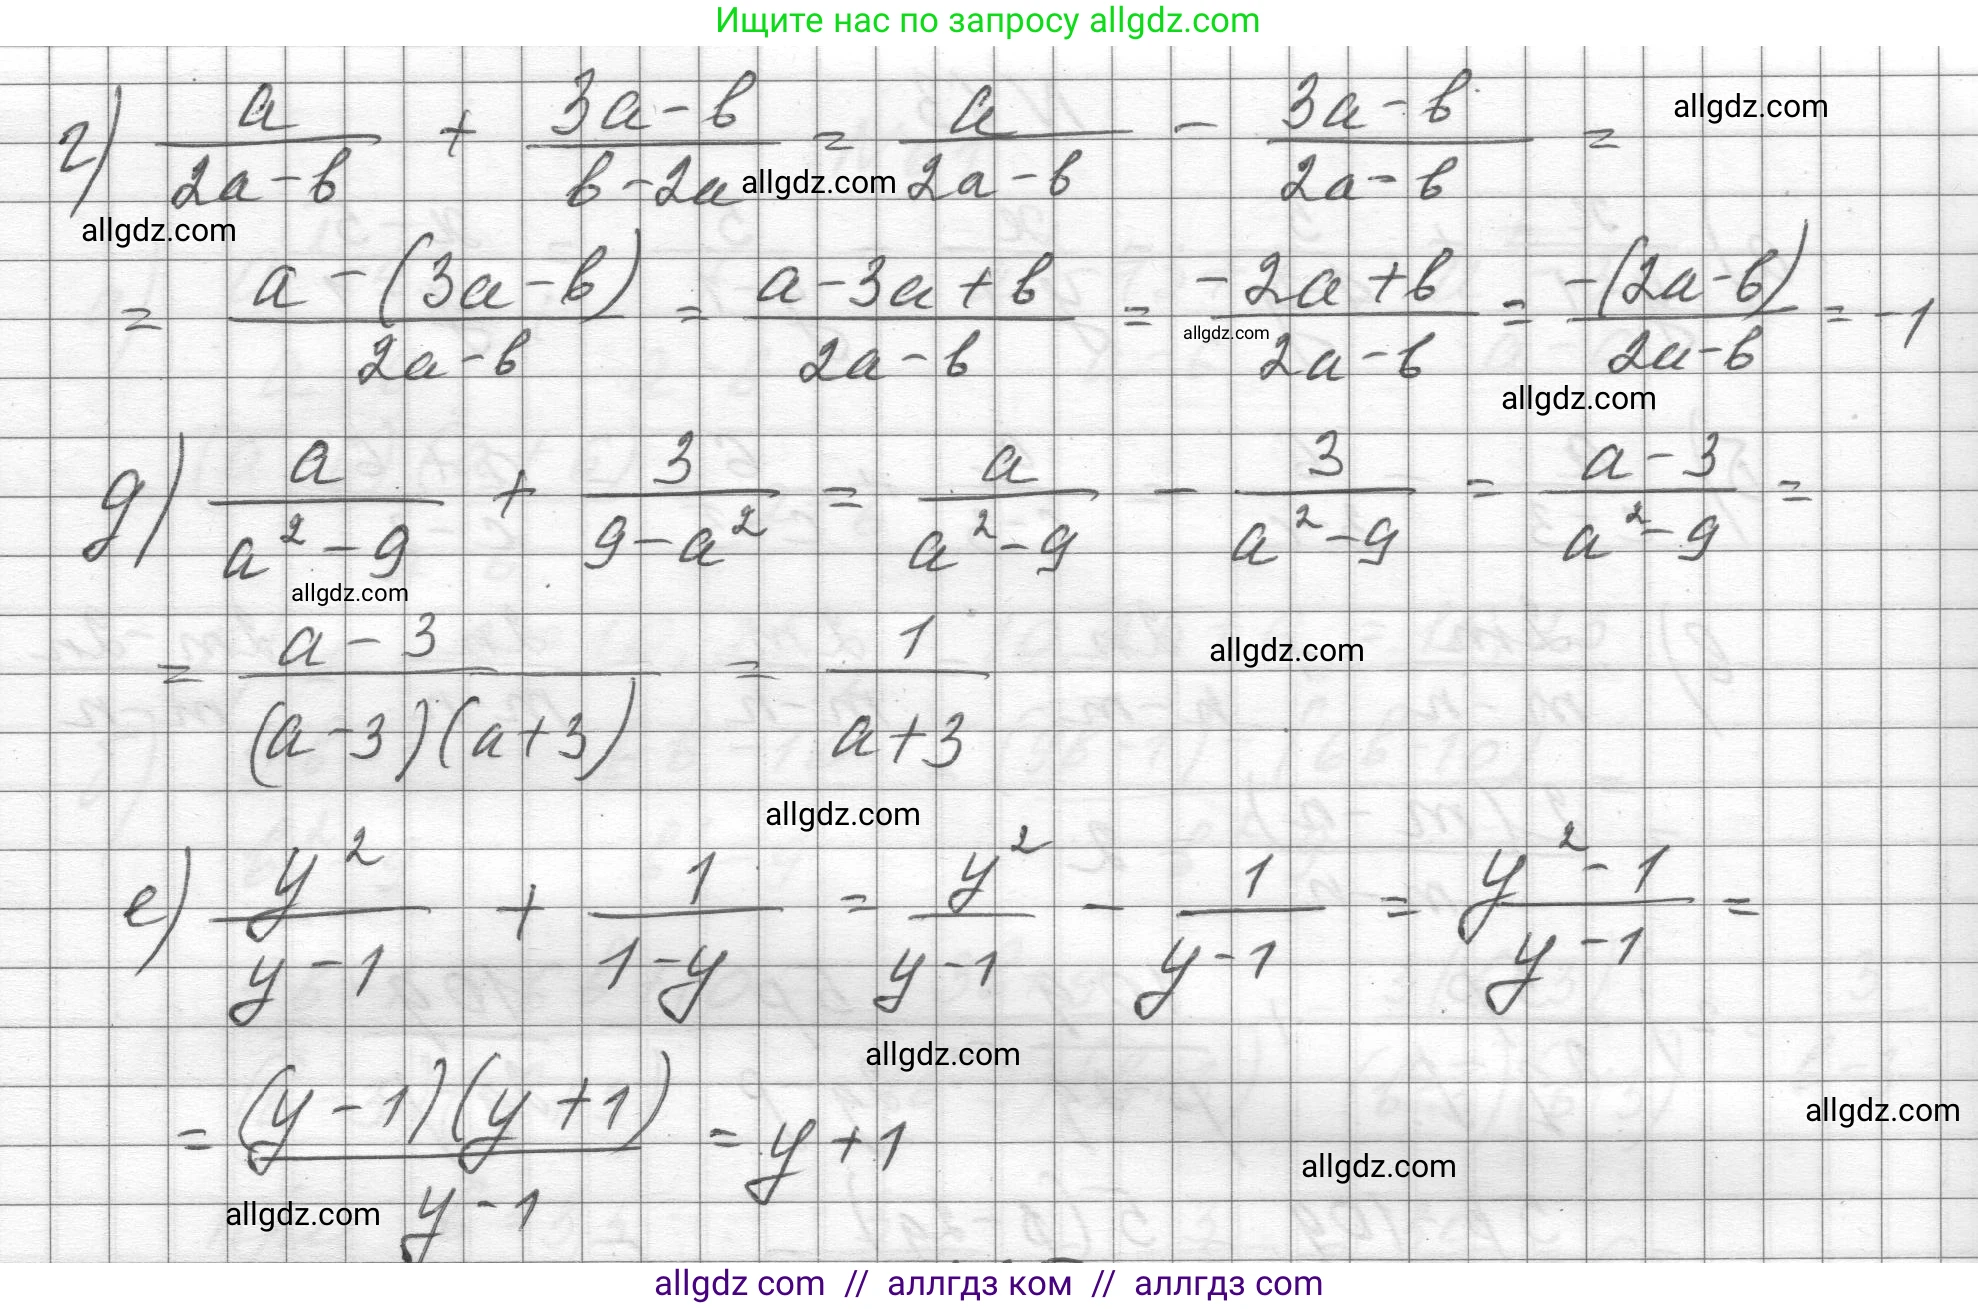 Ищите нас по запросу allgdz.com
г) a/(2a-b) + (3a-b)/(b-2a) = a/(2a-b) - (3a-b)/(2a-b) =
allgdz.com
allgdz.com
allgdz.com
= (a-(3a-b))/(2a-b) = (a-3a+b)/(2a-b) = (-2a+b)/(2a-b) = (-(2a-b))/(2a-b) = -1
allgdz.com
allgdz.com
д) a/(a²-9) + 3/(9-a²) = a/(a²-9) - 3/(a²-9) = (a-3)/(a²-9) =
allgdz.com
= (a-3)/((a-3)(a+3)) = 1/(a+3)
allgdz.com
allgdz.com
е) y²/(y-1) + 1/(1-y) = y²/(y-1) - 1/(y-1) = (y²-1)/(y-1) =
allgdz.com
allgdz.com
= ((y-1)(y+1))/(y-1) = y+1
allgdz.com
allgdz.com
allgdz com // аллгдз ком // аллгдз com